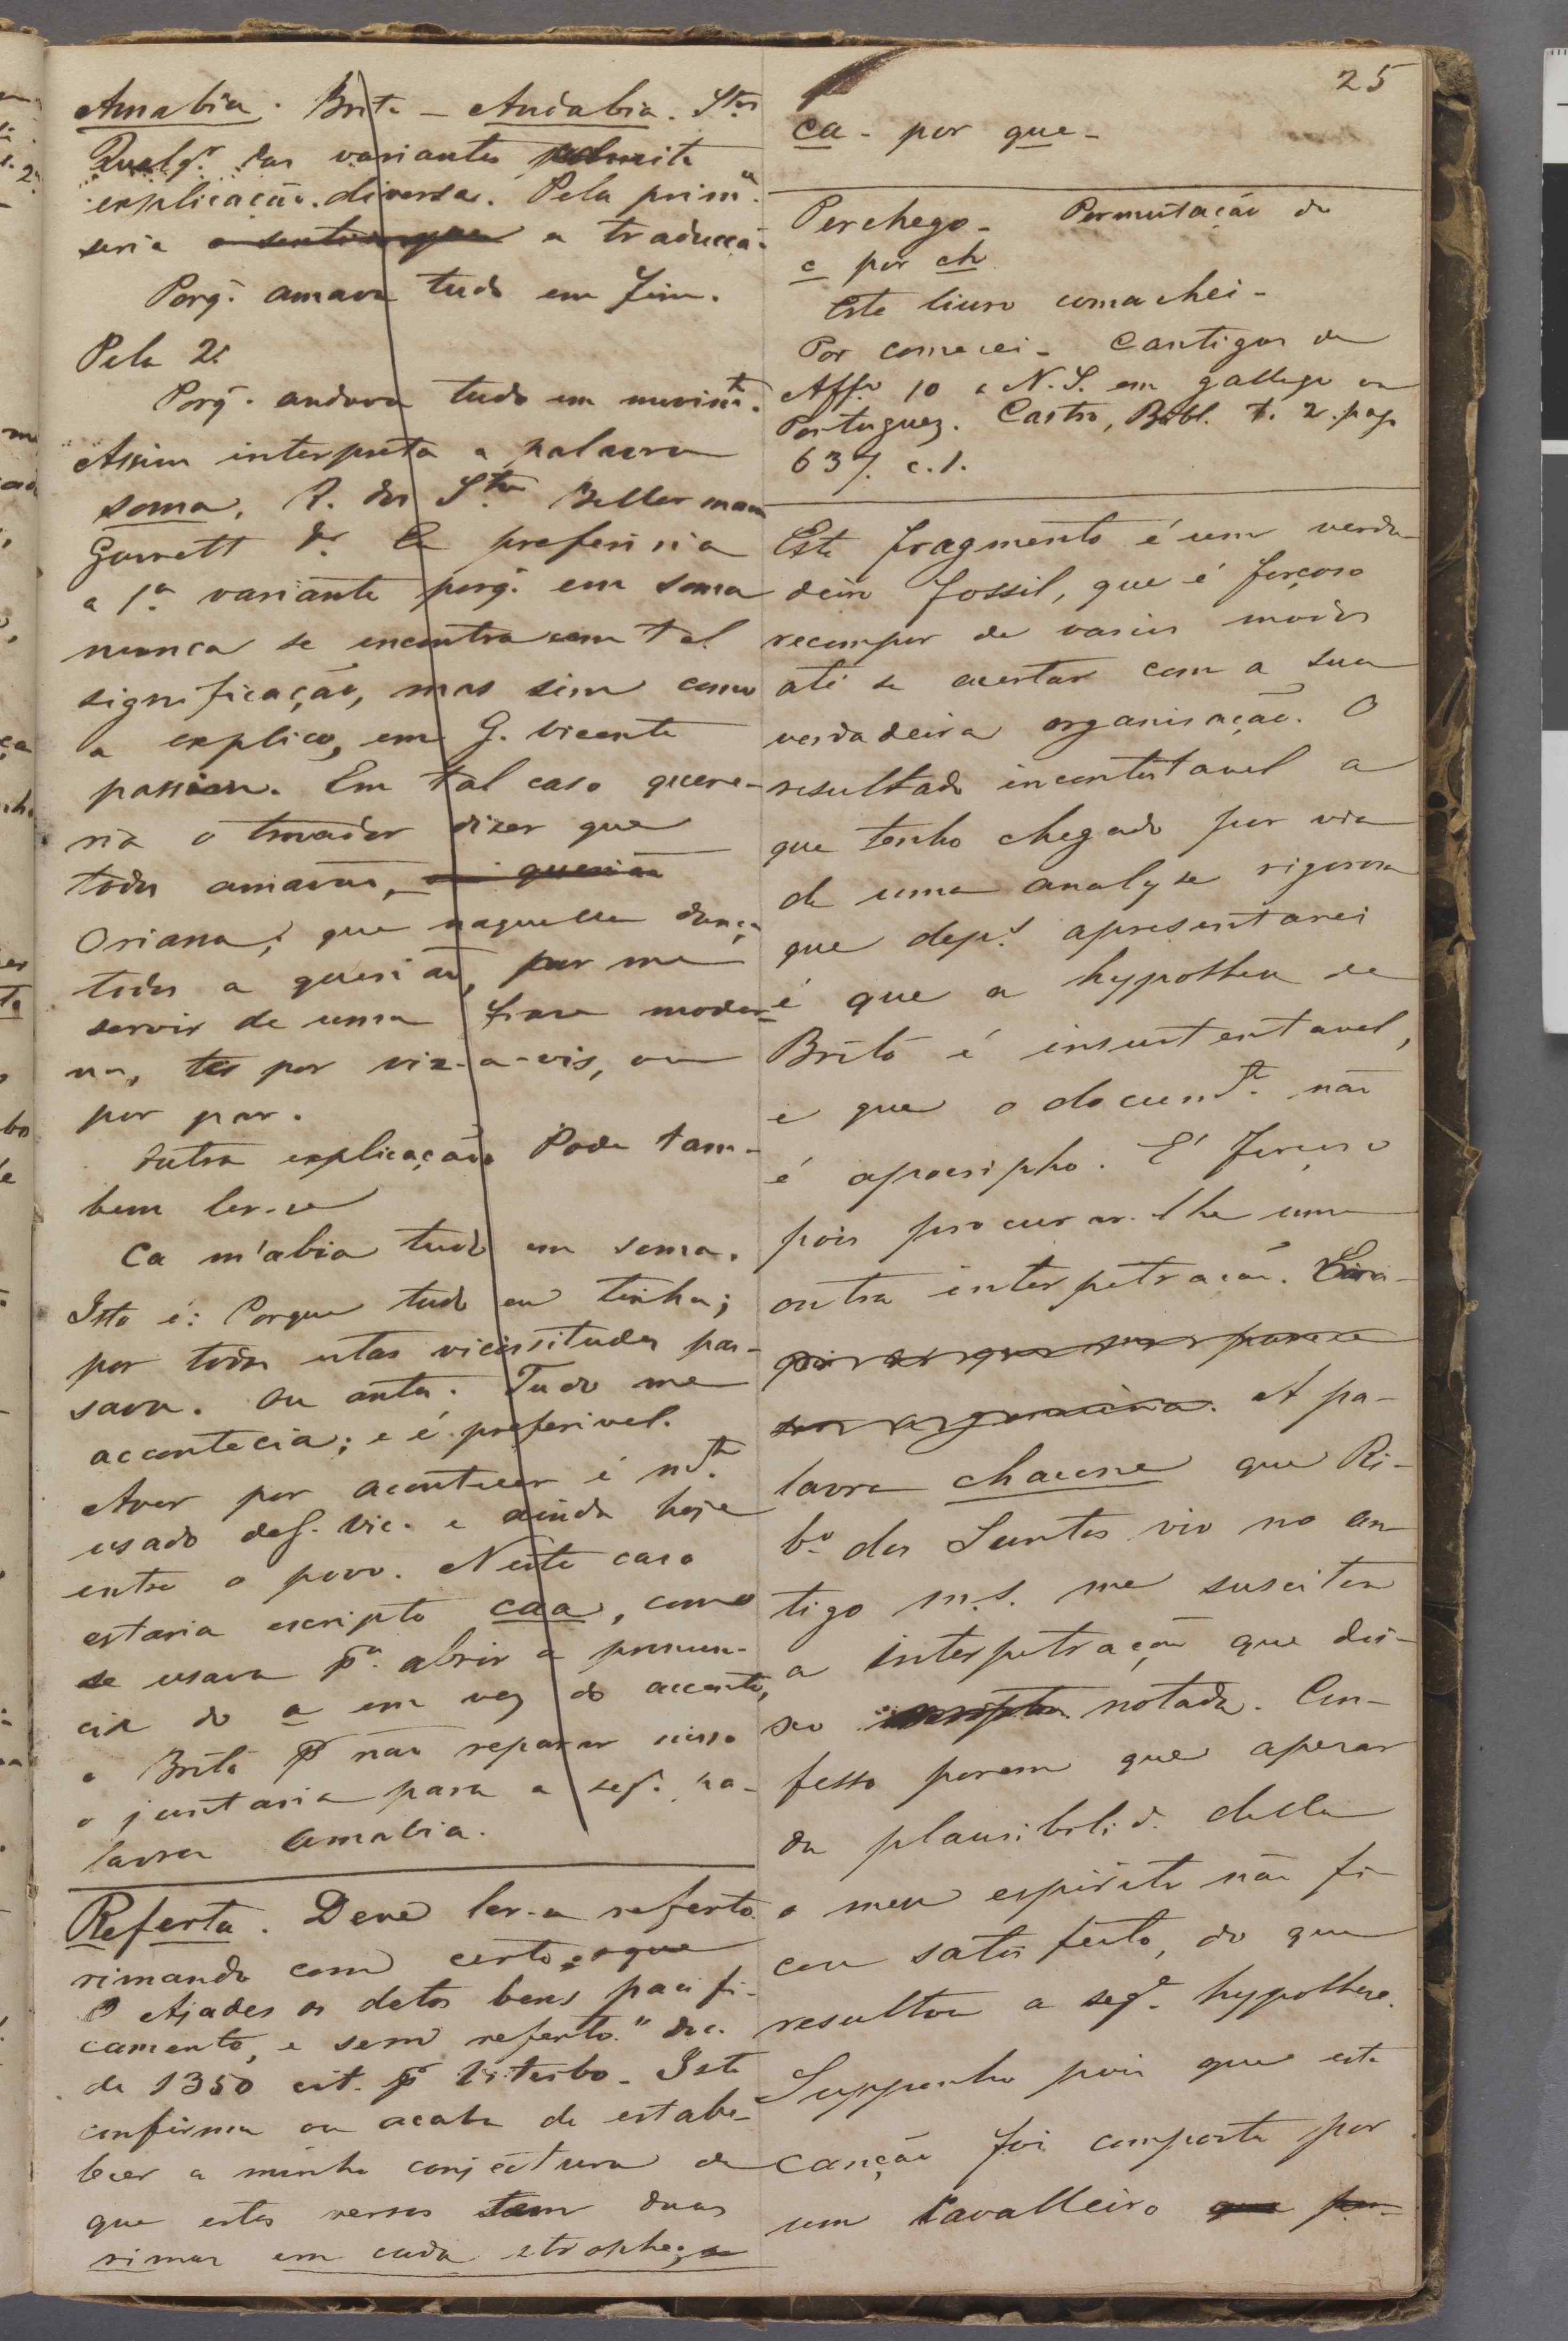 25
Amabia. Brito - Andabia. Stos
Qualqr. das variantes admite
explicação diversa. Pela primª
seria a traducçã-
Porq. amava tudo em fim.
Pela 2ª
Porq. andava tudo em movimto.
Assim interpreta a palavra
soma, R. dos Stos Bellermann
Garrett &. Eu preferiria
a 1ª variante porq. em soma
nunca se encontra com tal
significação, mas sim como
a explico, em G. Vicente
passim. Em tal caso quere-
ria o trovador dizer que
todos amavão,
Oriana; que naquella dança
todos a querião, por me
servir de uma frase moder-
na, por viz-a-vis, ou
por par.
Outra explicação. Pode tam-
bem ler-se
Ca m'abia tudo em soma.
Isto é: Porque tudo eu tinha;
por todas estas vicissitudes pas-
sava. Ou antes. Tudo me
accontecia; e é preferivel.
Aver por acontecer é mto.
usado de G. Vic. e ainda hoje
entre o povo. Neste caso
estaria escripto caa, como
se usava pª abrir a pronun-
cia do a em vez do accento,
e Brito pr não reparar nisso
o juntaria para a segª. pa-
lavra amabia.
Referta. Deve ler-se referto
rimando com certo, e que
"Ajades os detos bens pacifi-
camente, e sem referto." doc.
de 1350 cit. pr Viterbo. Isto
confirma ou acaba de estabe-
lecer a minha conjectura de
que estes versos tem duas
rimas em cada strophe;
ca - por que -
Perchego - Permutação de
c por ch
Este livro comachei -
Por comecei - Cantigas de
Affo. 10 a N. S. em gallego ou
Portuguez. Castro, Bibl. t. 2. pag.
637. c. 1.
Este fragmento é um verda-
deiro fossil, que é forçoso
recompor de varios modos
até se acertar com a sua
verdadeira organisação. O
resultado incontestavel a
que tenho chegado por via
de uma analyse rigorosa
que deps. apresentarei
é que a hypothese de
Brito é insustentavel,
e que o documto. não
é apocripho. É forçoso
pois procurar-lhe uma
outra interpetração.
A pa-
lavra chacone que Ri-
bo. dos Santos vio no an-
tigo m.s. me suscitou
a interpetração que dei-
xo notada. Con-
fesso porem que apezar
da plausibilid. della
o meu espirito não fi-
cou satisfeito, do que
resultou a segª. hypothese.
Supponho pois que esta
canção foi composta por
um Cavalleiro